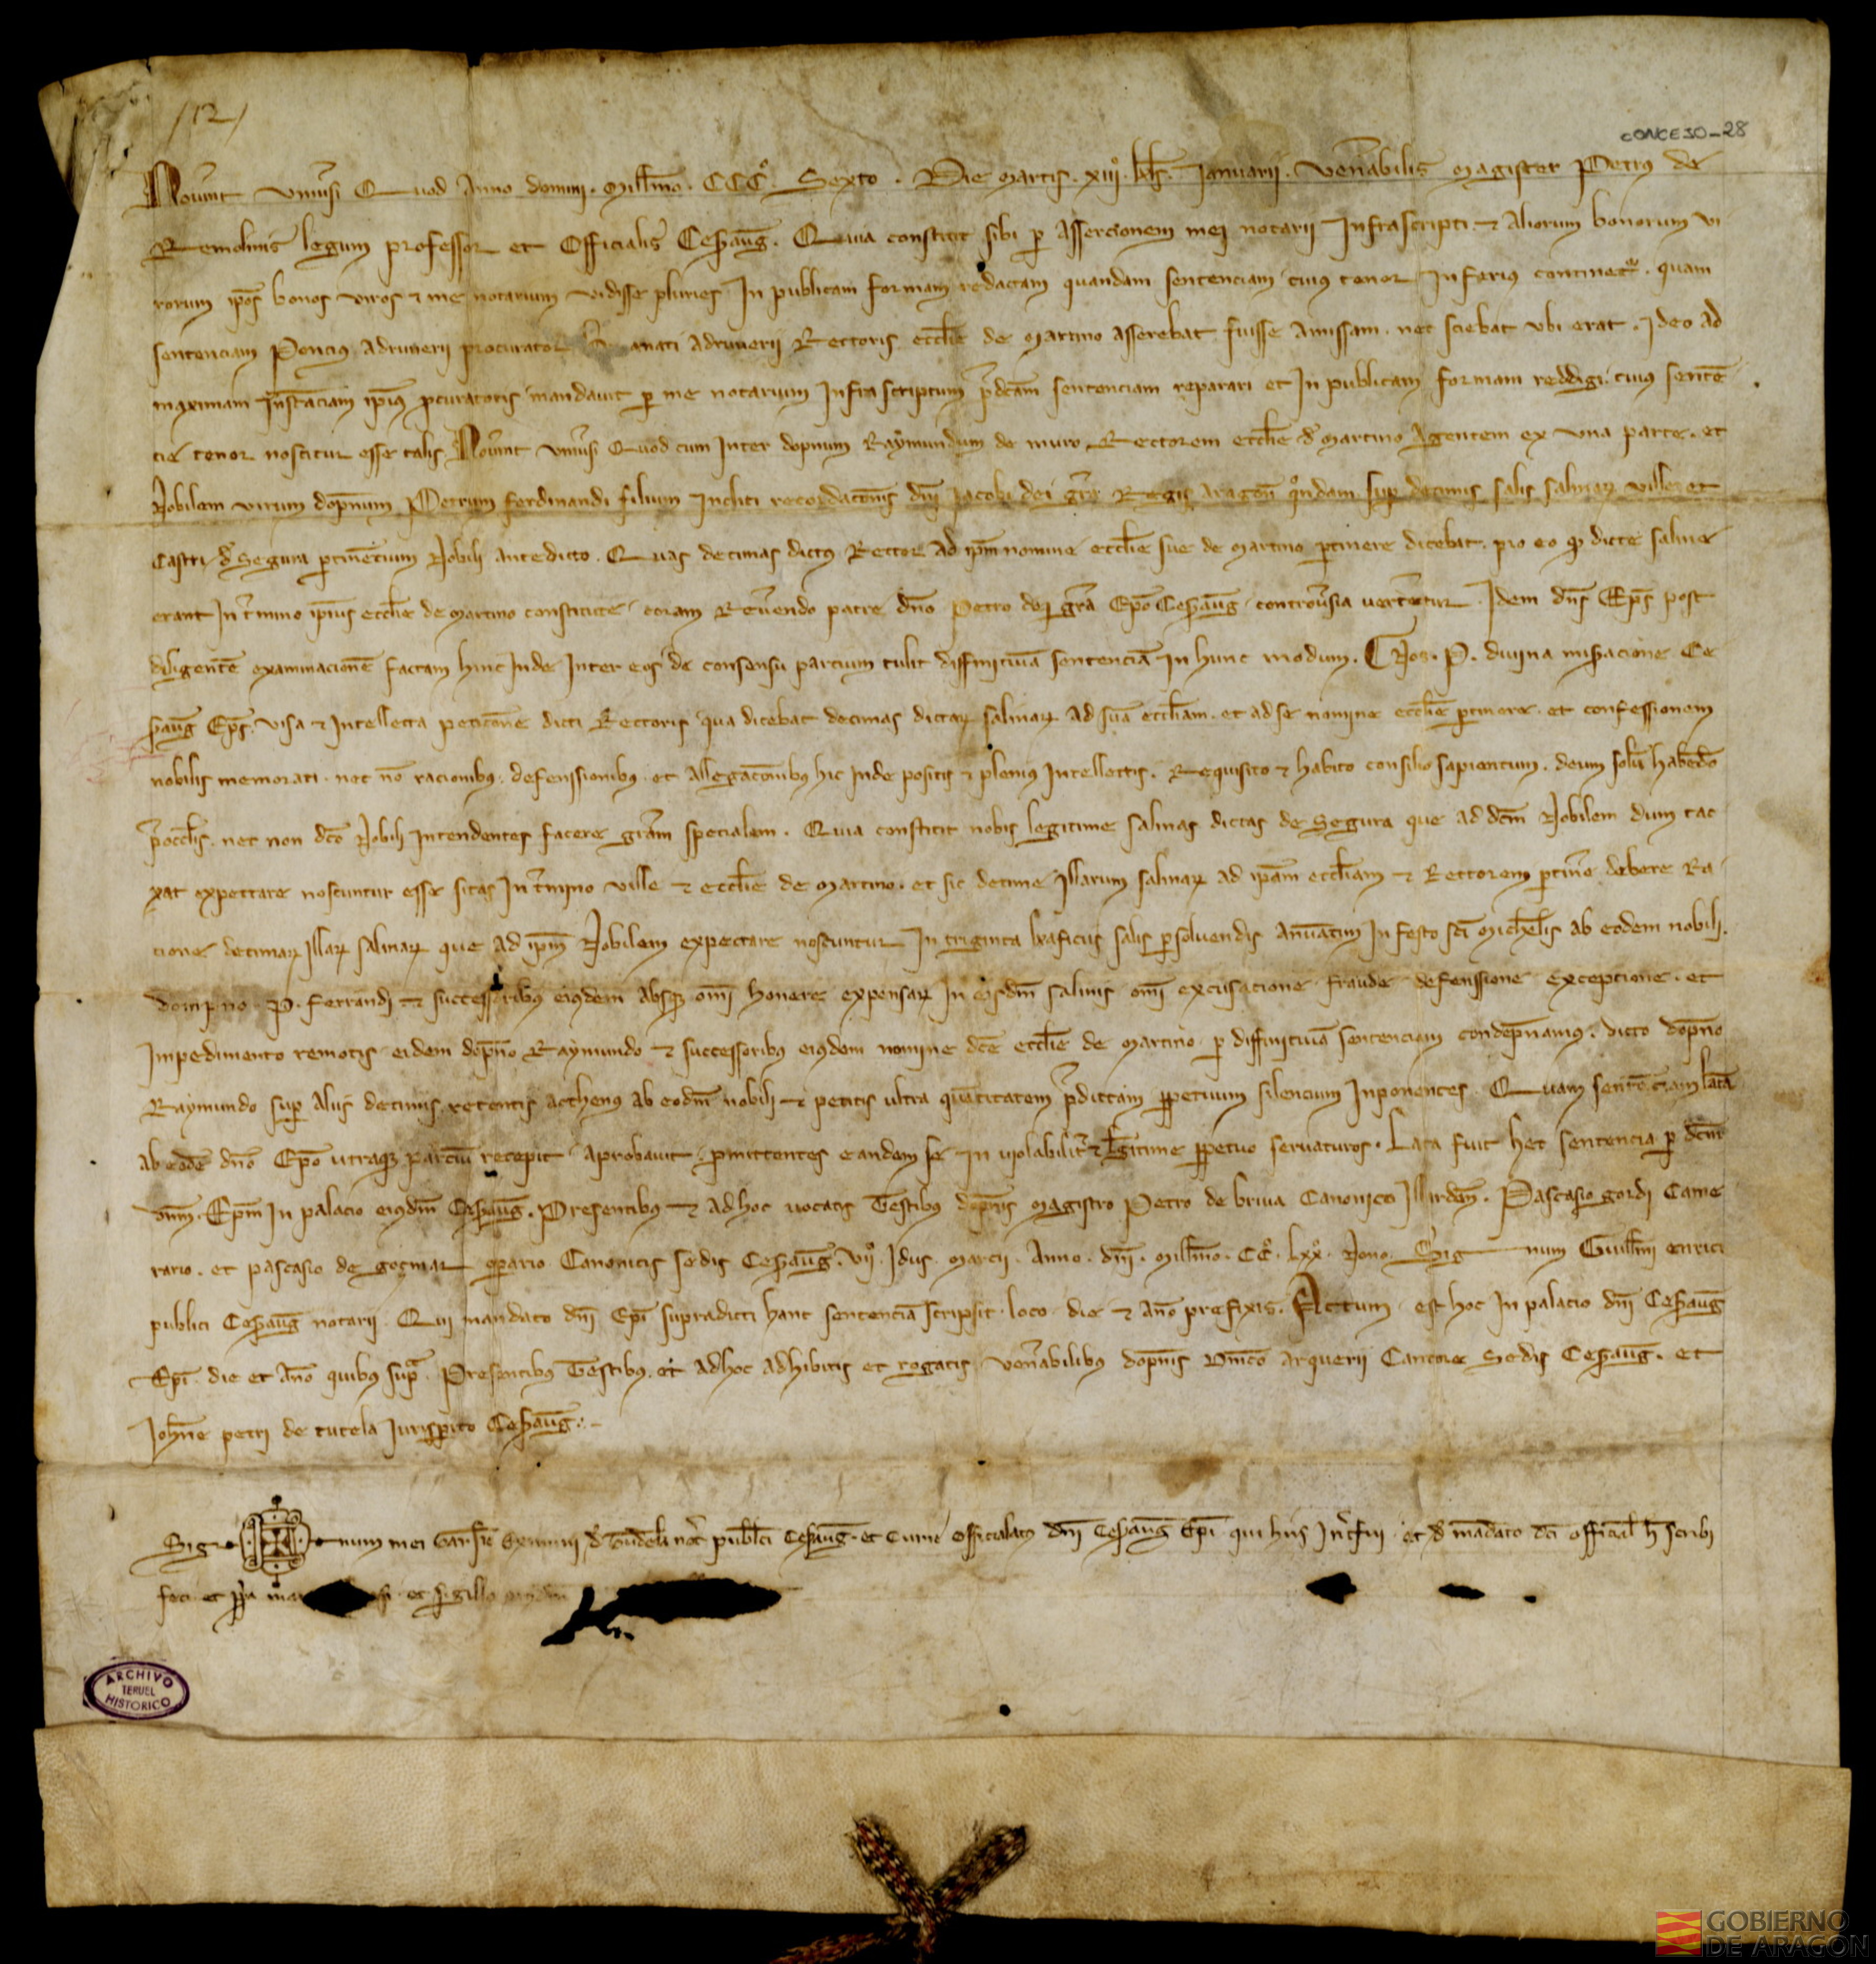 /12/
CONCEJO-28
Nov̄int Univ̄si Quod Anno domini. Mill̄mo. CCCº. Sexto. Die Martis. xiiiº. kl̄s. Januarii. Ven̄abilis Magister Petrus de
Remolinis legum professor et Officialis Cesarauḡ. Quia constitit sibi p̱ assercionem mei notarii Infrascripti ⁊ Aliorum bonorum vi
rorum ip̄os bonos viros ⁊ me notarium vidisse pluries In publicam formam redactam quandam sentenciam cuius tenor Inferius continetur. quam
sentenciam Poncius Adruverii procurator Adruverii Rectoris eccl̄ie de Martino asserebat fuisse Amissam. nec sciebat ubi erat. Ideo Ad
maximam Instanciam ip̄ius p̱curatoris mandavit p̱ me notarium Infrascriptum p̄dc̄am sentenciam reparari et In publicam formam reddigi. cuius senten̄
cie tenor noscitur esse talis. Nov̄int Univ̄si Quod cum Inter dopnum Raymundum de muro Rectorem eccl̄ie d̄ Martino Agentem ex una parte. et
Nobilem virum dop̄num Petrum ferdinandi filium Incliti recordac̄onis dn̄i Jacobi dei gr̄a Regis Aragon̄ q̊ndam sup̱ decimis salis salinar̄ ville et
Castri d̄ Segura p̱tinēcium Nobili antedicto. Quas decimas dictus Rector Ad ip̄m nomine eccl̄ie sue de Martino p̱tinere dicebat. pro eo q̱ dicte saline
erant In t̄mino ip̄ius eccl̄ie de Martino constitute. coram Rev̄endo patre dn̄o Petro dei gr̄a Ep̄o Cesarauḡ. controv̄sia verteretur. Idem dn̄s Ep̄s post
diligentē examinacionē factam hinc Inde Inter eos de consensu parcium tulit diffinitivā sentenciā In hunc modum. Nos. P. divina mis̄acione Ce
sarauḡ Ep̄s. visa ⁊ Intellecta petic̄one dicti Rectoris qua dicebat decimas dictar̄ salinar̄ Ad suā eccl̄iam. et ad se nomine eccl̄ie p̱tinere. et confessionem
nobilis memorati. nec nō racionibus. defenssionibus. et Allegac̄onibus hic Inde positis ⁊ plenius Intellectis. Requisito ⁊ habito consilio sapientum. deum solū habēdo
p̄ occ̄lis. nec non dc̄o Nobili Intendentes facere gr̄am specialem. Quia constitit nobis legitime salinas dictas de Segura que ad dc̄m Nobilem dum tac
xat expectare noscuntur esse sitas In t̄mino ville ⁊ eccl̄ie de Martino. et sic decime Illarum salinar̄ ad ip̄am eccl̄iam ⁊ Rectorem p̱tin̄e debere Ra
cione decimar̄ Illar̄ salinar̄ que ad ip̄m Nobilem expectare noscuntur In triginta kaficiis salis p̱solvendis Anuātim In festo sc̄i Mich̄elis ab eodem nobili.
dompno. P. ferrandi ⁊ successoribus eiusdem Absq̱ om̄i honere expensar̄ In eisdm̄ salinis om̄i excusacione fraude defenssione exceptione. et
Impedimento remotis. eidem dop̄no Raymundo ⁊ successoribus eiusdem nomine dc̄e eccl̄ie de Martino p̱ diffinitivā sentenciam condep̄namus. dicto dop̄no
Raymundo sup̱ Aliis decimis retentis acthenus ab eodm̄ nobili ⁊ petitis ultra quātitatem p̄dictam p̱petuum silencium Inponentes. Quam sentē ciam latā
ab eodē dn̄o Ep̄o utraq̱ parciū recepit Aprobavit. p̱mittentes eandem se In violabilit̄ ⁊ legitime p̱petuo servaturos. Lata fuit hec sentencia p̱ dc̄m
dn̄m. Ep̄m In palacio eiusdm̄ Cesarauḡ. Presentibus ⁊ Ad hoc vocatis Testibus dop̄nis Magistro Petro de briva Canonico Illerden̄. Pascasio gordi Came
rario. et pascasio de gocmar op̱ario Canonicis sedis Cesarauḡ. viiº. Idus. Marcii. Anno. dn̄i. Mill̄mo. CCº. lxxº. Nono. Sig num Guill̄mi enrici
publici Cesarauḡ notarii. Qui mandato dn̄i Ep̄i supradicti hanc sentenciā scripsit. loco. die ⁊ ān̄o prefixis. Actum est hoc In palacio dn̄i Cesarauḡ
Ep̄i. die et An̄o quibus sup̱ª. Presentibus Testibus. et Ad hoc Adhibitis et rogatis. Ven̄abilibus dop̄nis Arquerii Cantore Sedis Cesarauḡ. et
Joh̄ne petri de tutela Jurisp̱ito Cesarauḡ.
Sig num mei Eximini d̄ Tudela not̄ publ̄ci Cesarauḡ. et Curie officialatus dn̄i Cesarauḡ Ep̄i. qui hiis In̄tfui. et d̄ mandato dc̄i official̄ h̄ scribi
feci et et sigillo
ARCHIVO
TERUEL
HISTORICO
GOBIERNO
DE ARAGON